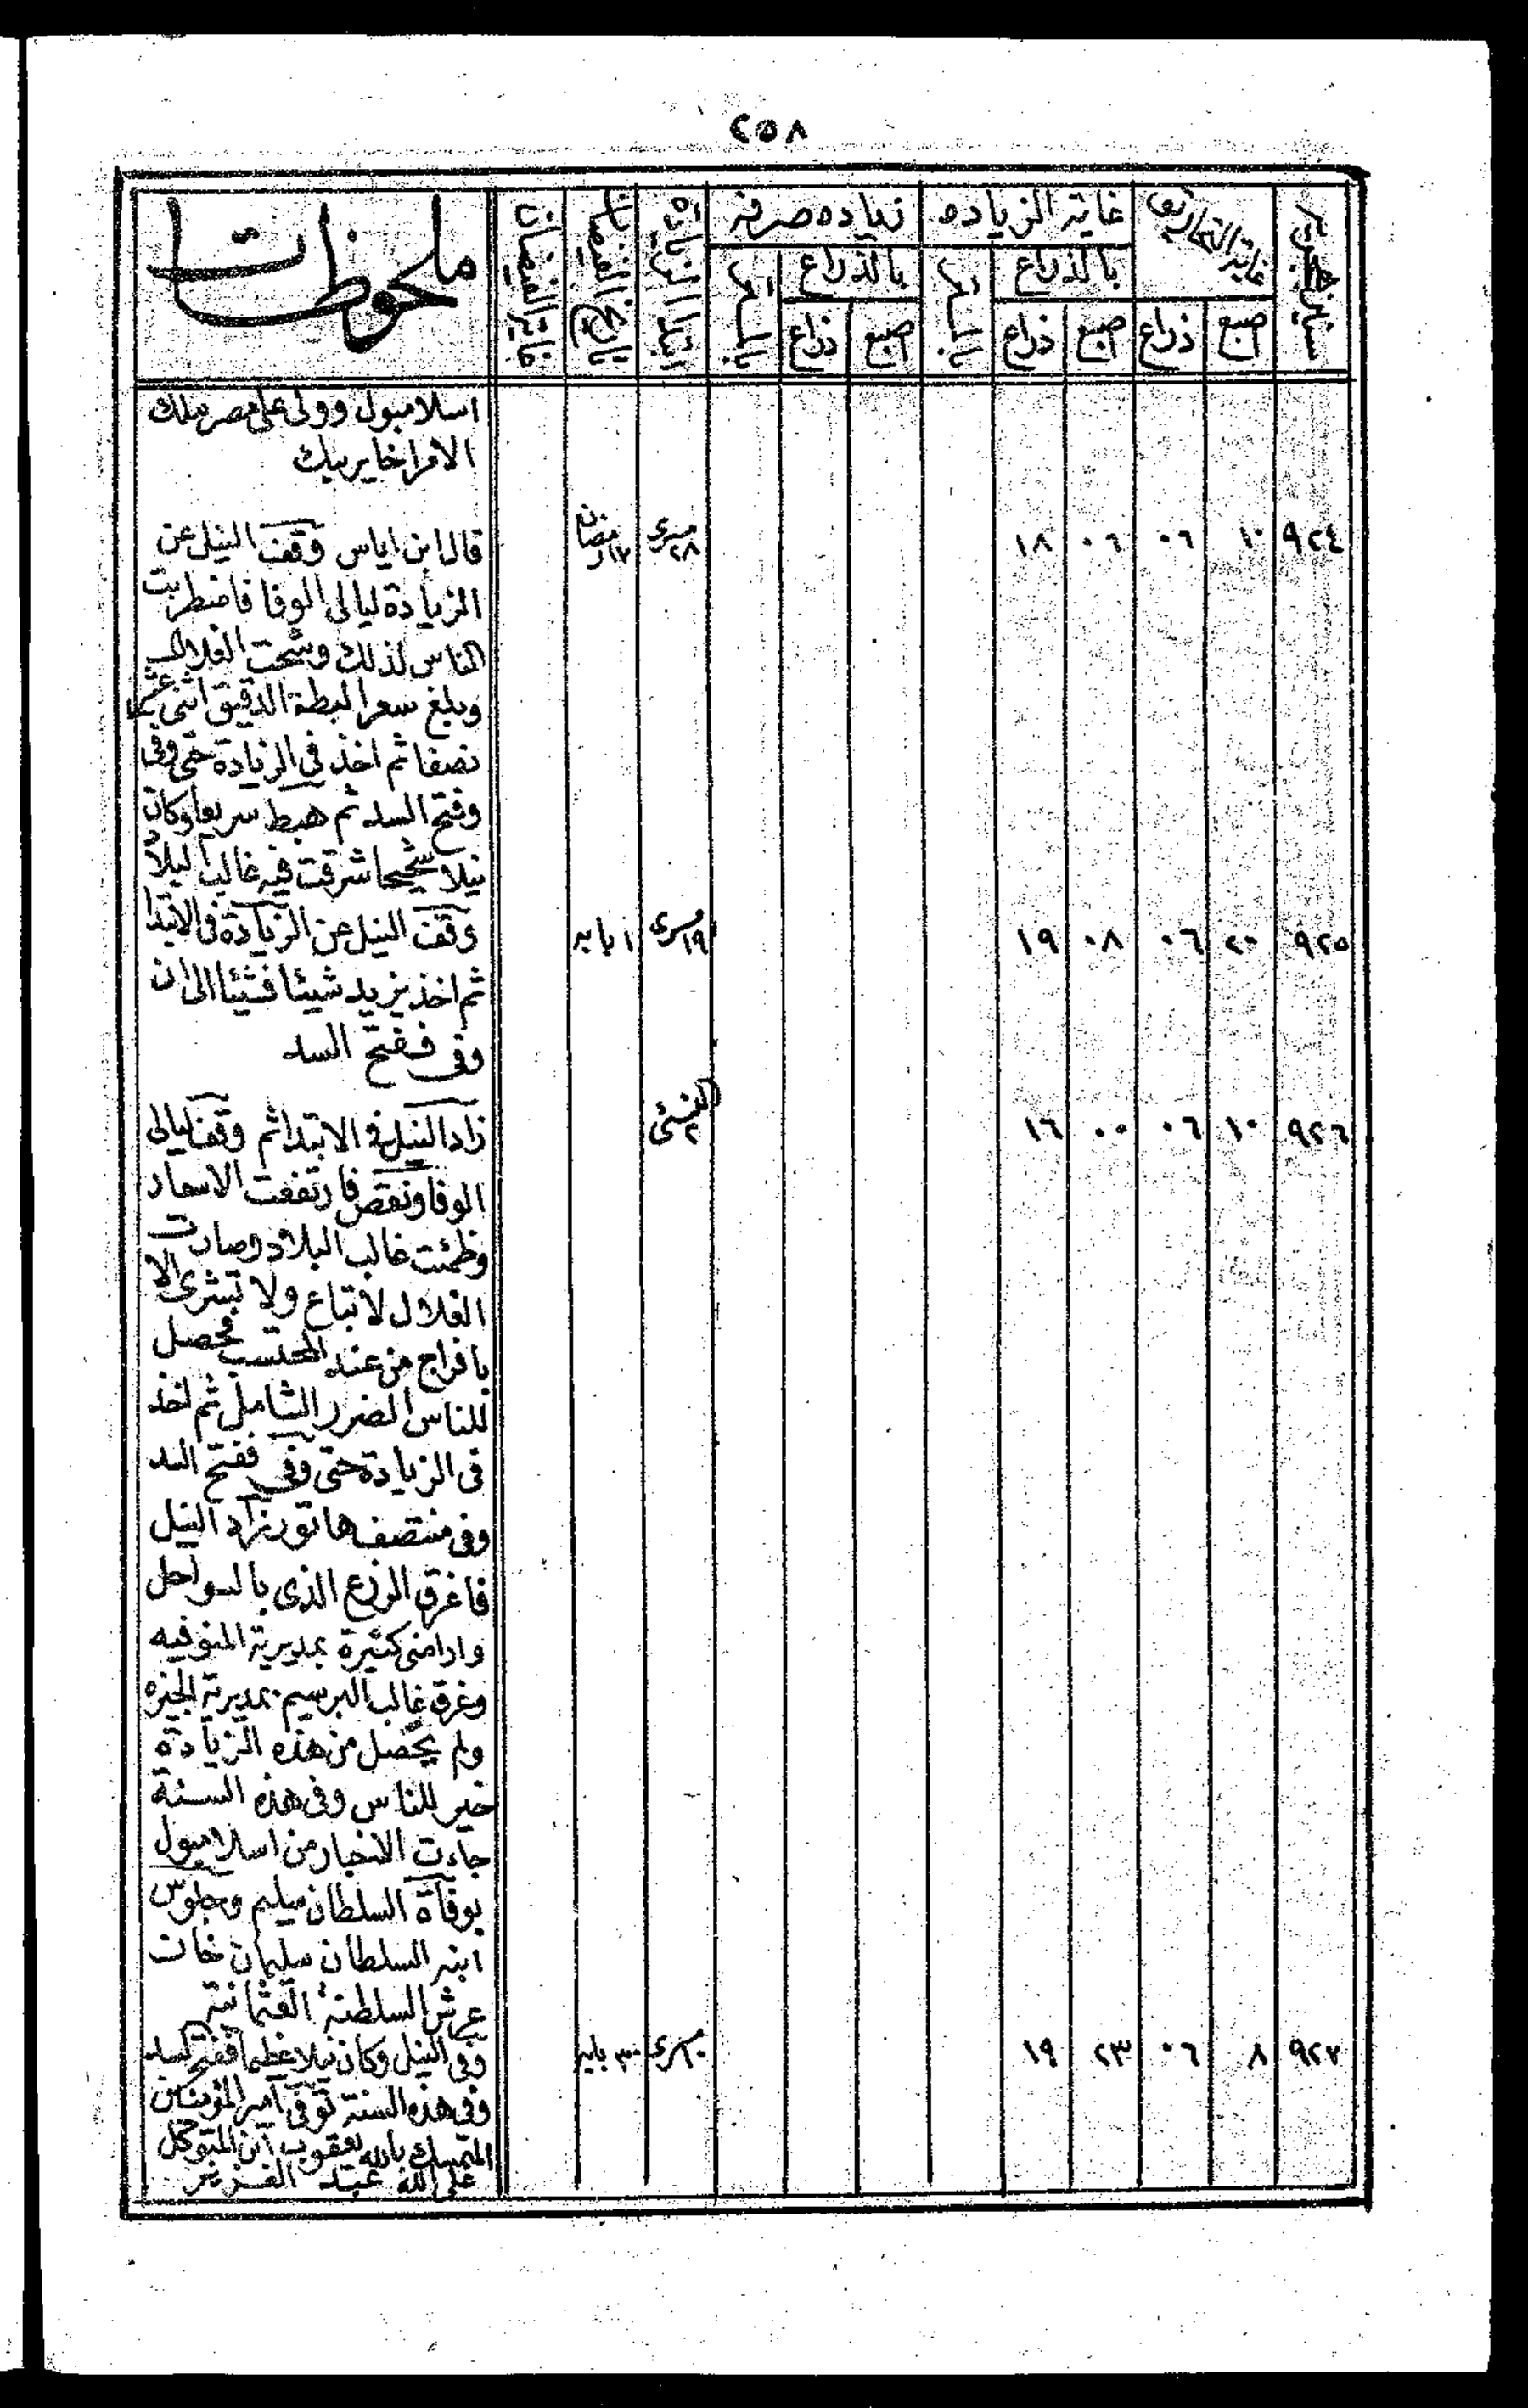 ٢٥٨
سنين هجرية
غاية التحاريق
غاية الزيادة
زياده صرفه
ابتدا الزياده
تاريخ الفيضان
غاية الفيضان
ملحوظات
بالذراع
بالذراع
اصبع ذراع اصبع ذراع اصبع ذراع
اسلامبول وولى على مصر ملك
الامرا خاير بيك
٩٢٤ ١٠ ٠٦ ٠٦ ١٨ مسرى ٢٨ ١٧ رمضان
قال ابن اياس وقف النيل عن
الزيادة ليالى الوفا فاضطربت
الناس لذلك وشحت الغلال
وبلغ سعر البطة الدقيق اثنى عشر
نصفا ثم اخذ فى الزيادة حتى وفى
وفتح السد ثم هبط سريعا وكان
نيلا شحيحا شرقت فيه غالب البلاد
٩٢٥ ٢٠ ٠٦ ٠٨ ١٩ مسرى ١٩ ١ بابه
وقف النيل عن الزيادة فى الابتدا
ثم اخذ يزيد شيئا فشيئا الى ان
وفى ففتح السد
٩٢٦ ١٠ ٠٦ ٠٠ ١٦ النسئى ٢
زاد النيل فى الابتدا ثم وقف ليالى
الوفا ونقص فارتفعت الاسعار
وظمئت غالب البلاد وصارت
الغلال لا تباع ولا تشرى الا
بافراج من عند المحتسب فحصل
للناس الضرر الشامل ثم اخذ
فى الزيادة حتى وفى ففتح السد
وفى منتصف هاتور زاد النيل
فاغرق الزرع الذى بالسواحل
واراضى كثيرة بمديرية المنوفيه
وغرق غالب البرسيم بمديرية الجيزه
ولم يحصل من هذه الزيادة
خير للناس وفى هذه السنة
جاءت الاخبار من اسلامبول
بوفاة السلطان سليم وجلوس
ابنه السلطان سليمان خان
عرش السلطنة العثمانية
٩٢٧ ٨ ٠٦ ٢٣ ١٩ مسرى ١٠ ٣٠ بابه
وفى النيل وكان نيلا عظيما ففتح السد
وفى هذه السنة توفى امير المؤمنين
المتمسك بالله يعقوب ابن المتوكل
على الله عبد العزيز